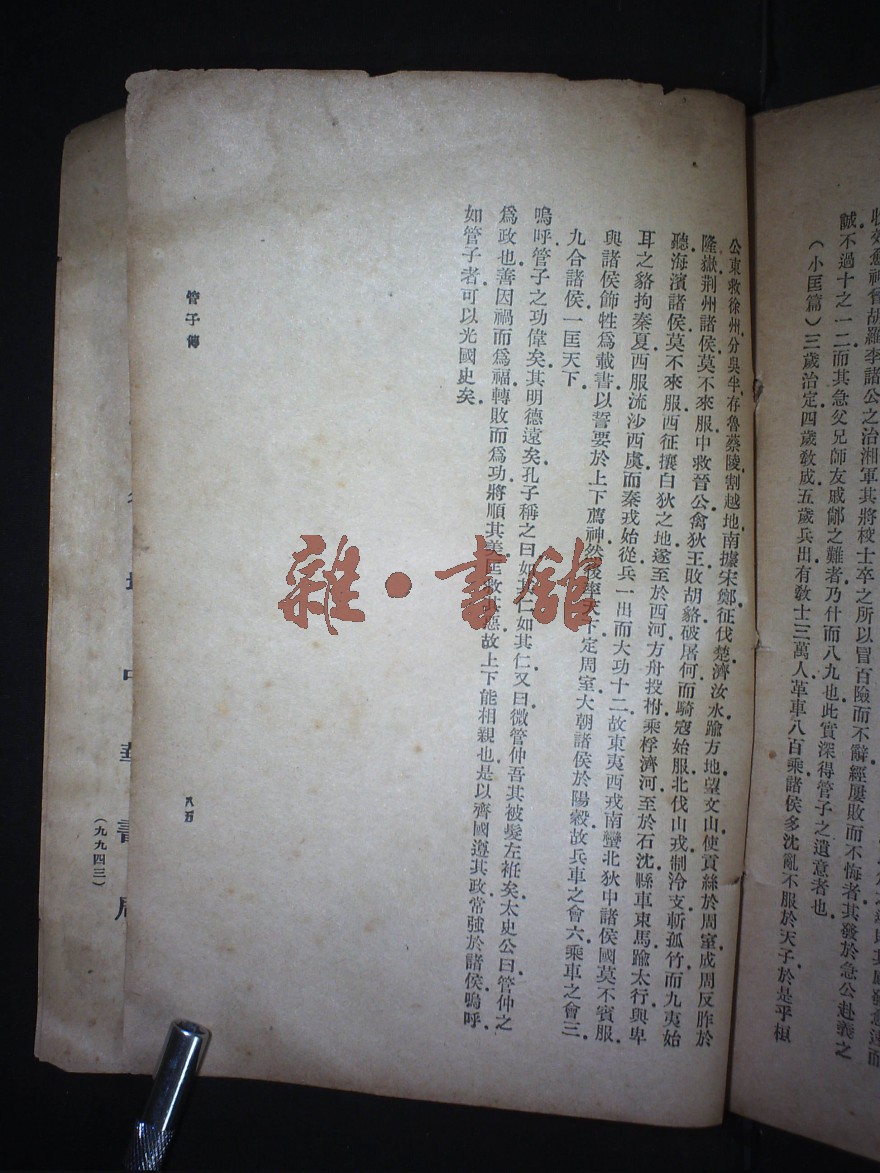 收效愈神曾胡羅李諸公之治湘軍其將校士卒之所以冒百險而不辭經屢敗而不悔者其發於急公赴義之
誠不過十之一二而其急父兄師友戚鄰之難者乃什而八九也此實深得管子之遺意者也
（小匡篇）三歲治定四歲敎成五歲兵出有敎士三萬人革車八百乘諸侯多沈亂不服於天子於是乎桓
公東救徐州分吳半存魯蔡陵割越地南據宋鄭征伐楚濟汝水踰方地望文山使貢絲於周室成周反胙於
隆嶽荆州諸侯莫不來服中救晉公禽狄王敗胡貉破屠何而騎寇始服北伐山戎制泠支斬孤竹而九夷始
聽海濱諸侯莫不來服西征攘白狄之地遂至於西河方舟投柎乘桴濟河至於石沈縣車束馬踰太行與卑
耳之貉拘秦夏西服流沙西虞而秦戎始從兵一出而大功十二故東夷西戎南蠻北狄中諸侯國莫不賓服
與諸侯飾牲爲載書以誓要於上下薦神然後率天下定周室大朝諸侯於陽穀故兵車之會六乘車之會三
九合諸侯一匡天下
嗚呼管子之功偉矣其明德遠矣孔子稱之曰如其仁如其仁又曰微管仲吾其被髮左袵矣太史公曰管仲之
爲政也善因禍而爲福轉敗而爲功將順其美匡救其惡故上下能相親也是以齊國遵其政常強於諸侯嗚呼
如管子者可以光國史矣
管子傳
八五
中華書局
（九九四三）
雜·書館